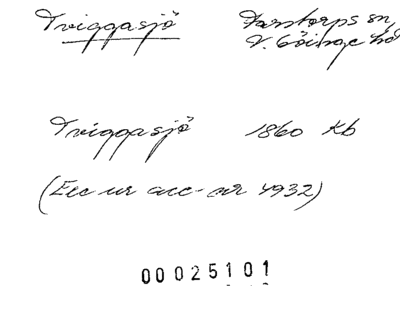 Tviggasjö Farstorps sn,
V. Göinge hd
Tviggasjö 1860 Kb
(Exc ur acc-nr 4932)
00025101